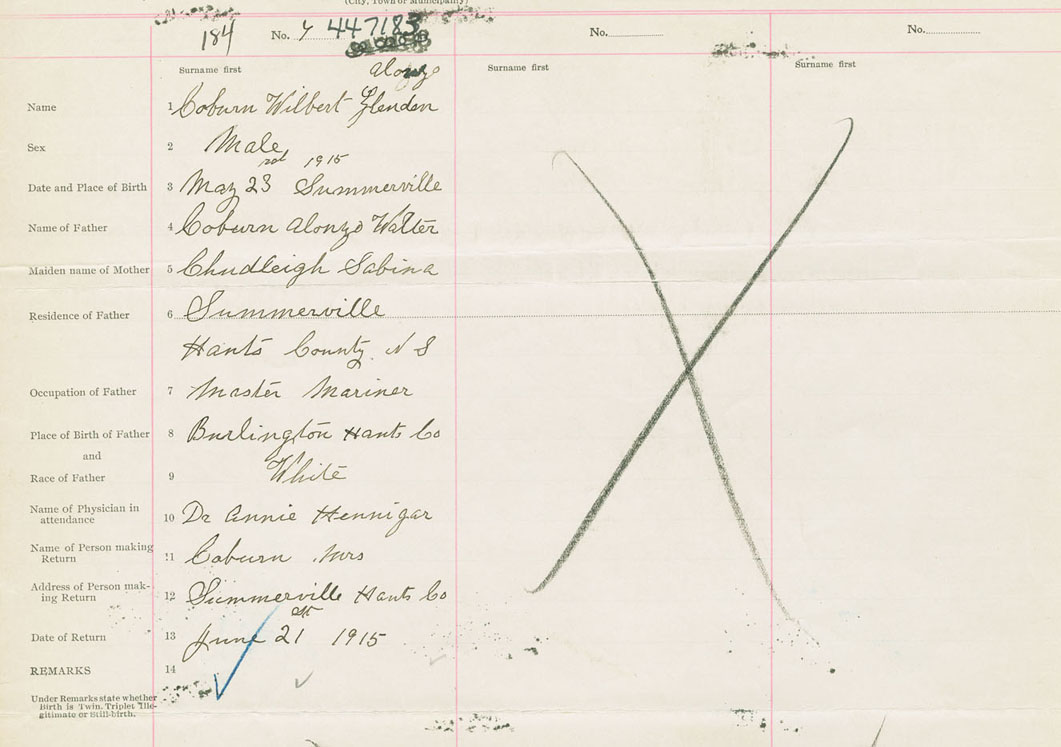 (City, Town or Municipality)
184 No. 447183 No. No.
Surname first Surname first Surname first
Alonzo
Name 1 Coburn Wilbert Glendon
Sex 2 Male
1915
Date and Place of Birth 3 May 23 Summerville
Name of Father 4 Coburn Alonzo Walter
Maiden name of Mother 5 Chudleigh Sabina
Residence of Father 6 Summerville
Hants County N S
Occupation of Father 7 Master Mariner
Place of Birth of Father 8 Burlington Hants Co
and
Race of Father 9 White
Name of Physician in
attendance 10 Dr Annie Hennigar
Name of Person making
Return 11 Coburn Mrs
Address of Person mak-
ing Return 12 Summerville Hants Co
Date of Return 13 June 21st 1915
REMARKS 14
Under Remarks state whether
Birth is Twin, Triplet Ille-
gitimate or Still-birth.